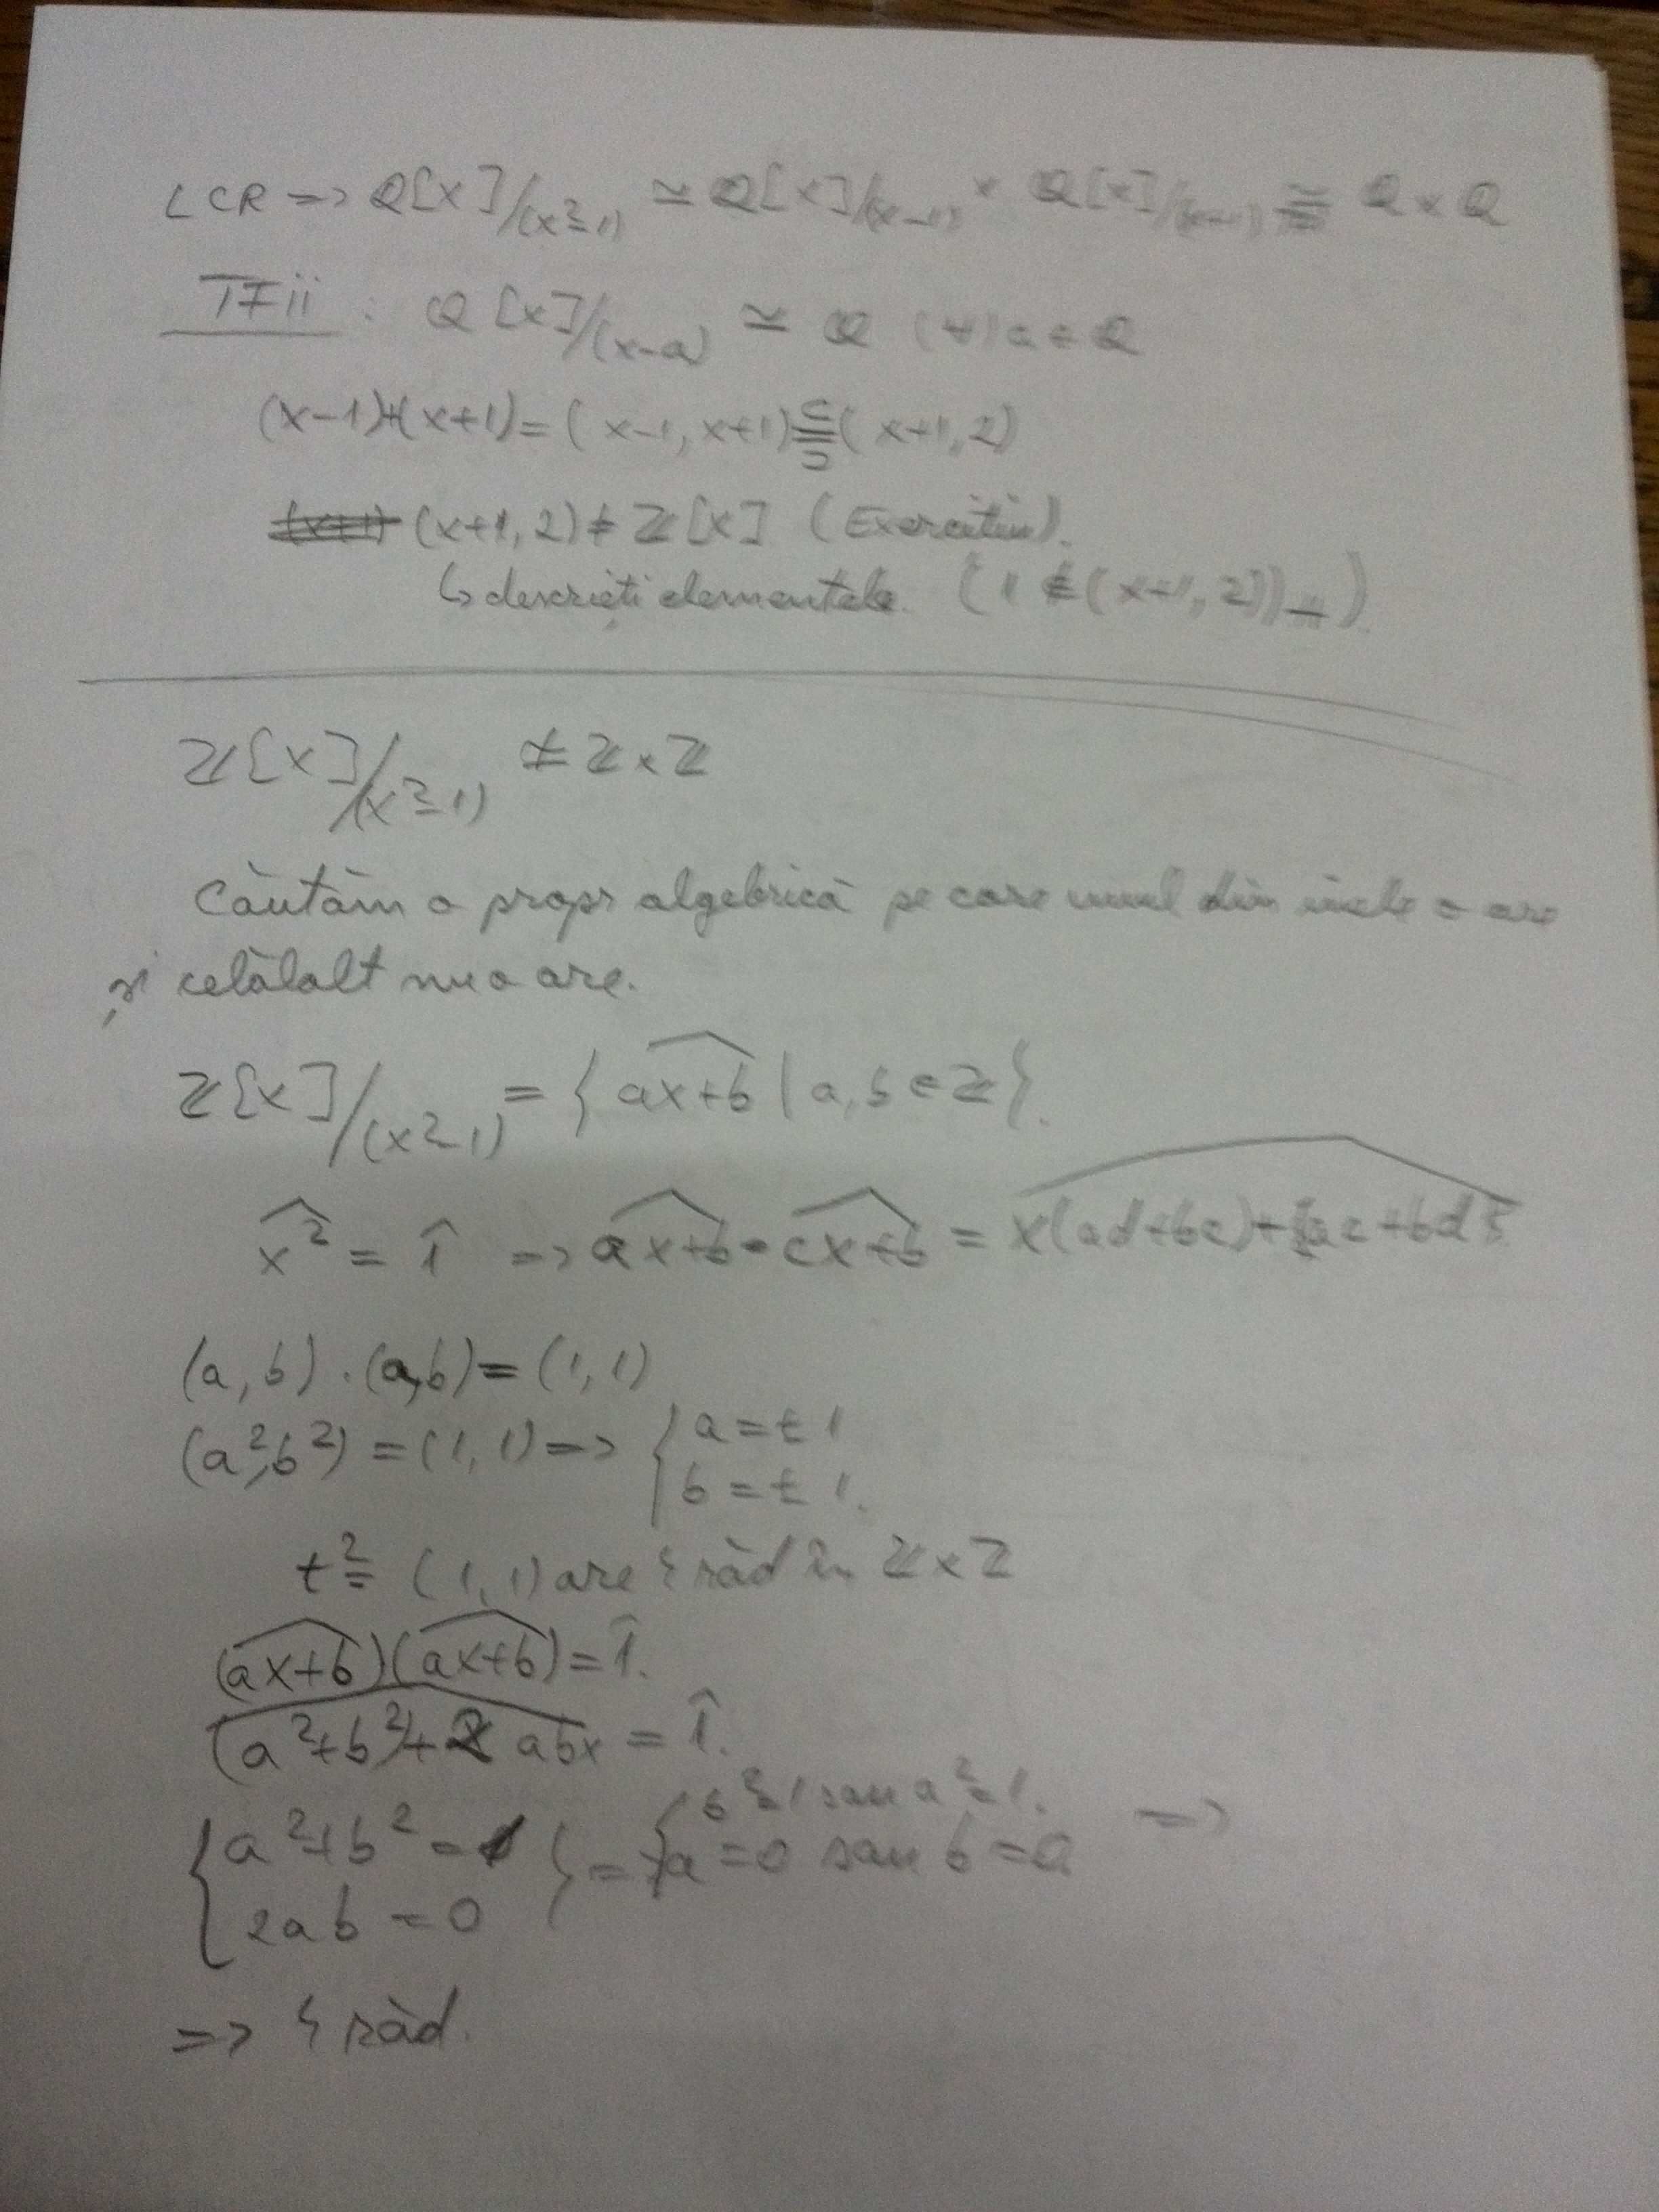 LCR => Q[X]/(x²-1) ≃ Q[X]/(x-1) × Q[X]/(x-1) ≅ Q × Q
TFii : Q[X]/(x-a) ≃ Q (∀) a ∈ Q
(x-1)+(x+1) = (x-1, x+1) = (x+1, 2)
(x+1, 2) ≠ Z[X] (Exercițiu).
↳ descrieți elementele. (1 ∉ (x+1, 2))
Z[X]/(x²-1) ≄ Z × Z
Căutăm o propr algebrică pe care unul din inele o are
și celălalt nu o are.
Z[X]/(x²-1) = { \widehat{ax+b} | a, b ∈ Z }.
\widehat{x²} = \hat{1} => \widehat{ax+b} · \widehat{cx+b} = \widehat{x(ad+bc)+(ac+bd)}
(a, b) · (a, b) = (1, 1)
(a², b²) = (1, 1) => { a = ±1
b = ±1.
t² = (1, 1) are 4 răd în Z × Z
(\widehat{ax+b})(\widehat{ax+b}) = \hat{1}.
\widehat{(a²+b²)+2abx} = \hat{1}.
{ a²+b² = 1 } => { b² = 1 sau a² = 1. =>
2ab = 0 a = 0 sau b = 0
=> 4 răd.